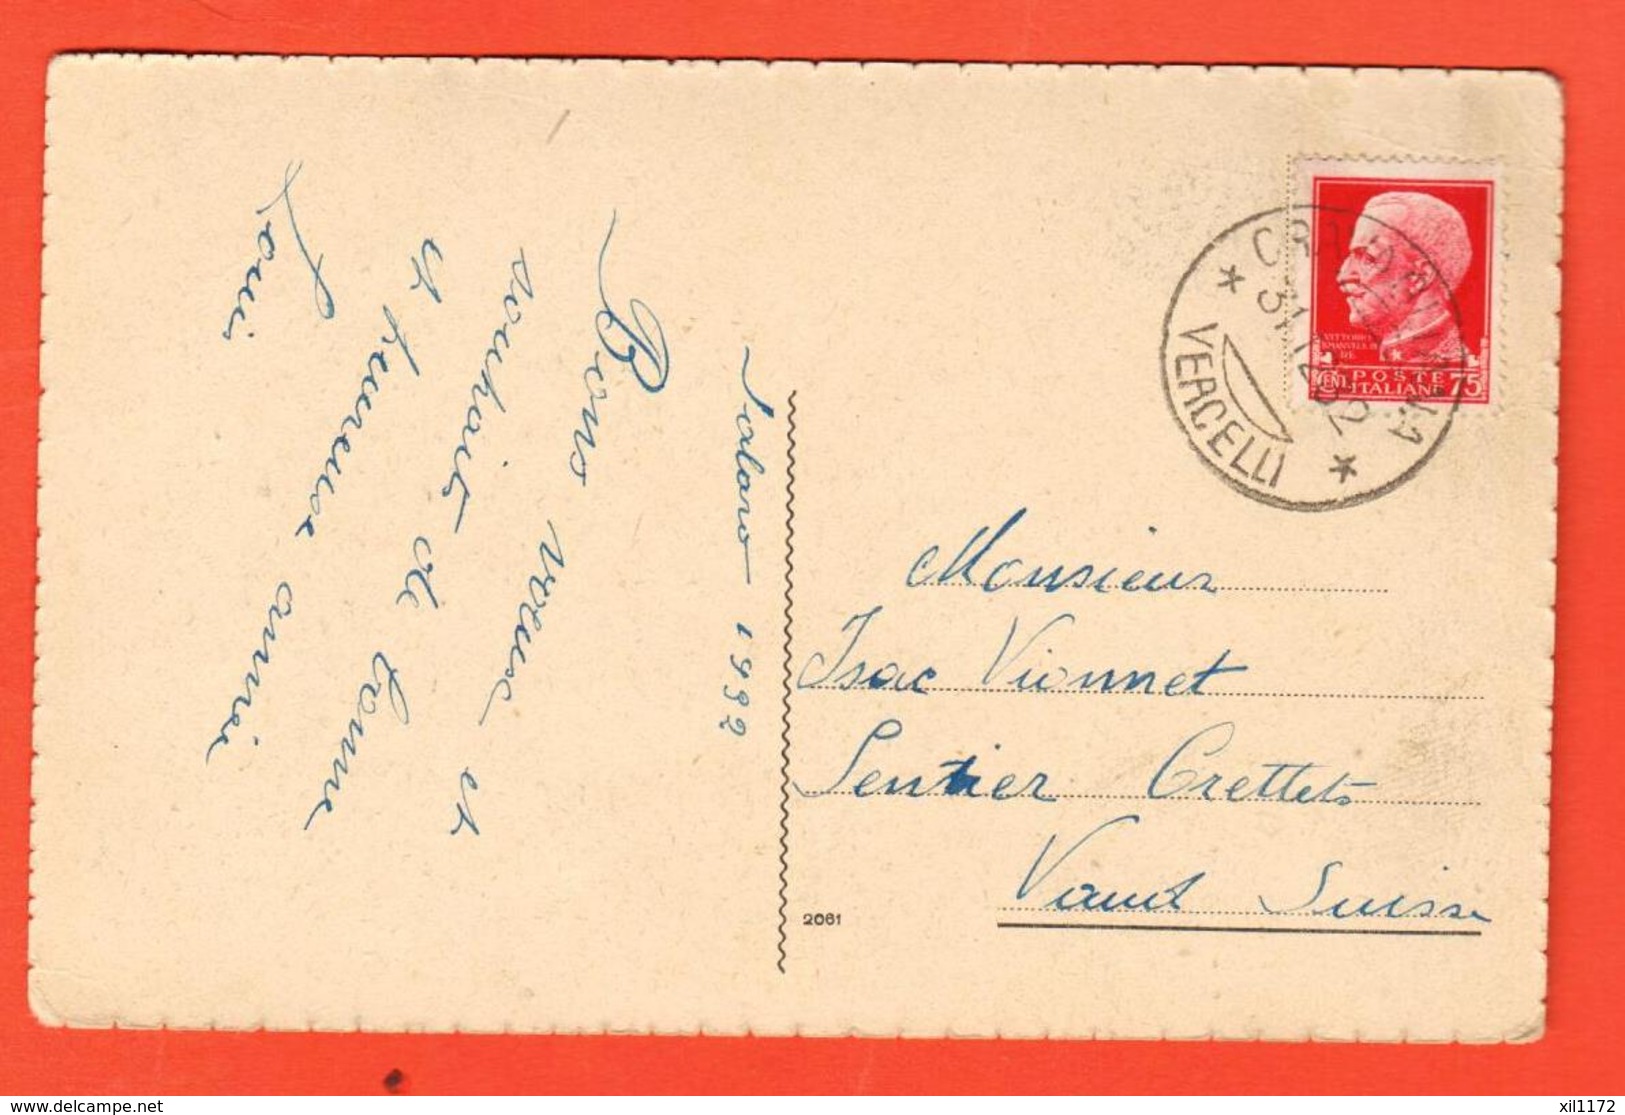 Salaro 1932
Bons voeux et
souhaits de bonne
et heureuse année
Louis
VITTORIO
EMANUELE III
RE
CENT POSTE 75
ITALIANE
VERCELLI
Monsieur
Isac Vionnet
Sentier Crettets
Vaud Suisse
2061
www.delcampe.net
xil1172